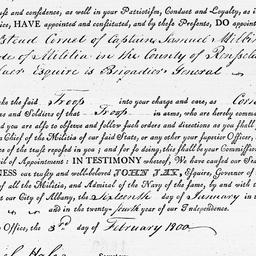 rust and confidence, as well in your Patriotism, Conduct and Loyalty, as i
ice, HAVE appointed and constituted, and by these Presents, DO appoin
stead Cornet of Captain Samuel Milbur
de of Militia in the County of Rensela
aer Esquire is Brigadier General
ke the said Troop into your charge and care, as Corn
rs and Soldiers of that Troop in arms, who are hereby comm
d you are also to observe and follow such orders and directions as you shall f
Chief of the Militia of our said State, or any other your Superior Officer,
e of the trust reposed in you; and for so doing, this shall be your Commission
cil of Appointment: IN TESTIMONY whereof, We have caused our Sea
NESS our trusty and well-beloved JOHN JAY, Esquire, Governor of
of all the Militia, and Admiral of the Navy of the same, by and with t
our City of Albany, the Sixteenth day of January in
and in the twenty-fourth year of our Independence.
Office, the 3rd day of February 1800